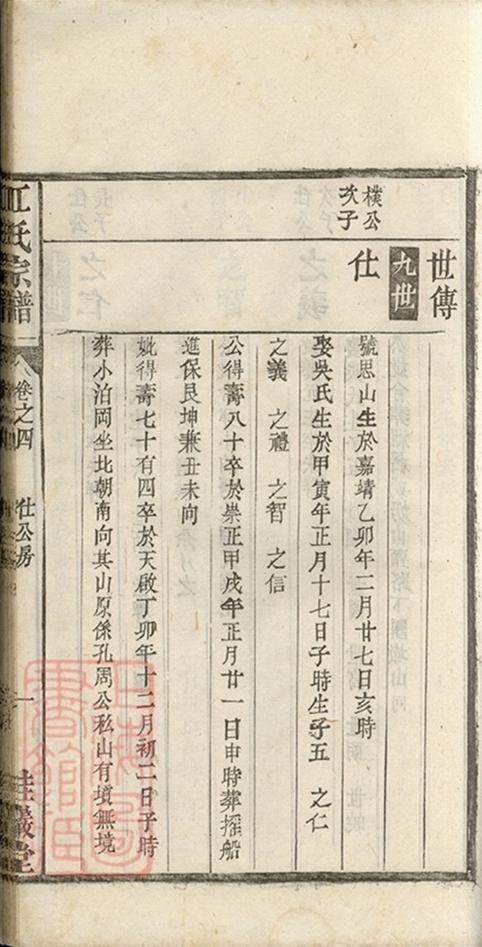 世傳
九世
樸公
次子
仕
號思山生於嘉靖乙卯年二月廿七日亥時
娶吳氏生於甲寅年正月十七日子時生子五　之仁
之義　之禮　之智　之信
公得壽八十卒於崇正甲戌年正月廿一日申時葬摇船
進保艮坤兼丑未向
妣得壽七十有四卒於天啟丁卯年十二月初二日子時
葬小泊岡坐北朝南向其山原係孔周公私山有墳無境
江氏宗譜
卷之四
仕公房
一